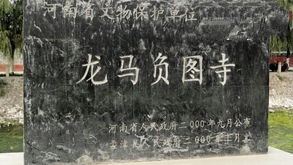 河南省文物保护单位
龙马负图寺
河南省人民政府二000年九月公布
孟津县人民政府二000年十月立